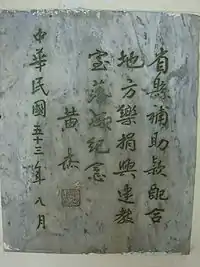 省縣補助款配合
地方樂捐興建教
室落成紀念
黃杰
中華民國五十三年八月